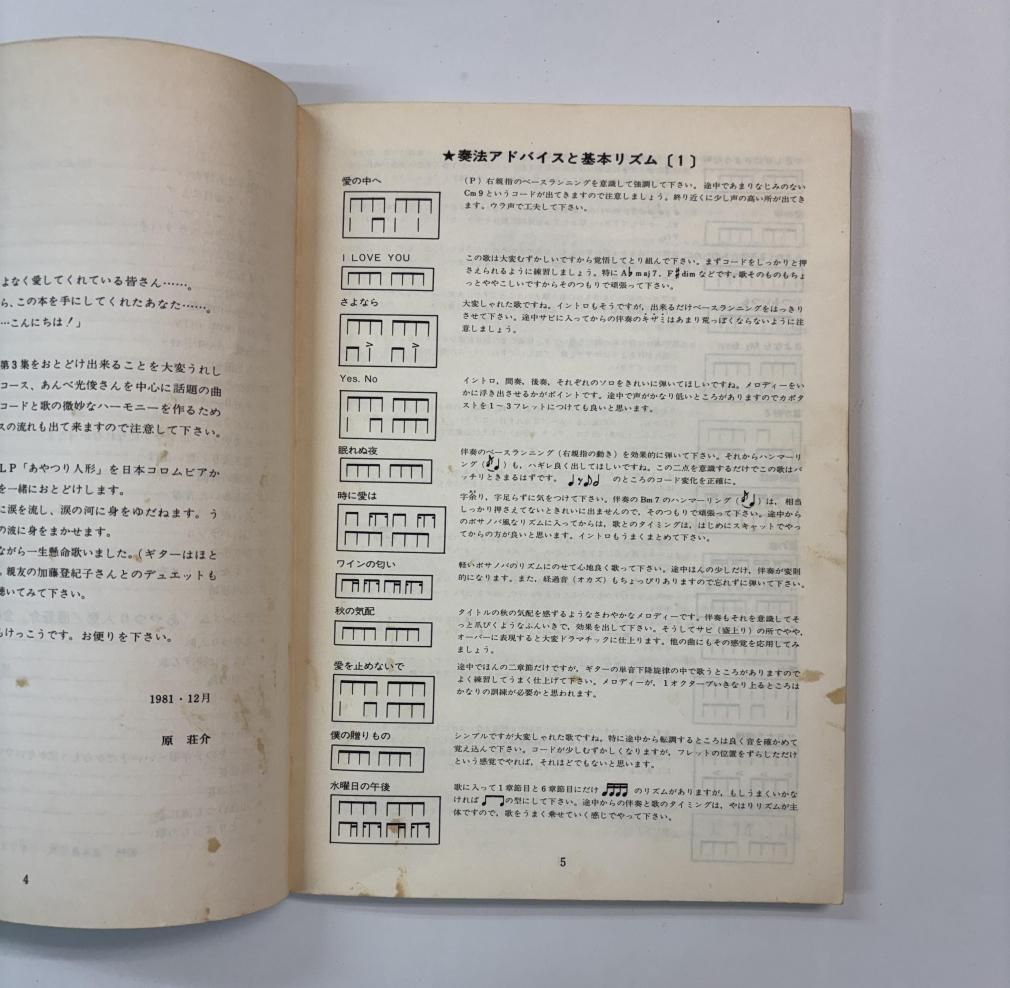 よなく愛してくれている皆さん……。
ら、この本を手にしてくれたあなた……。
…こんにちは！」
第3集をおとどけ出来ることを大変うれし
コース、あんべ光俊さんを中心に話題の曲
コードと歌の微妙なハーモニーを作るため
スの流れも出て来ますので注意して下さい。
LP「あやつり人形」を日本コロムビアか
を一緒におとどけします。
に涙を流し、涙の河に身をゆだねます。う
の波に身をまかせます。
ながら一生懸命歌いました。(ギターはほと
。親友の加藤登紀子さんとのデュエットも
聴いてみて下さい。
もけっこうです。お便りを下さい。
1981・12月
原　荘介
4
★奏法アドバイスと基本リズム〔1〕
愛の中へ
(P) 右親指のベースランニングを意識して強調して下さい。途中であまりなじみのない
Cm9というコードが出てきますので注意しましょう。終り近くに少し声の高い所が出てき
ます。ウラ声で工夫して下さい。
I LOVE YOU
この歌は大変むずかしいですから覚悟してとり組んで下さい。まずコードをしっかりと押
さえられるように練習しましょう。特にA♭maj7，F♯dimなどです。歌そのものもちょ
っとややこしいですからそのつもりで頑張って下さい。
さよなら
大変しゃれた歌ですね。イントロもそうですが、出来るだけベースランニングをはっきり
させて下さい。途中サビに入ってからの伴奏のキザミはあまり荒っぽくならないように注
意しましょう。
Yes. No
イントロ，間奏，後奏，それぞれのソロをきれいに弾いてほしいですね。メロディーをい
かに浮き出させるかがポイントです。途中で声がかなり低いところがありますのでカポタ
ストを1～3フレットにつけても良いと思います。
眠れぬ夜
伴奏のベースランニング（右親指の動き）を効果的に弾いて下さい。それからハンマーリ
ング（♪）も，ハギレ良く出してほしいですね。この二点を意識するだけでこの歌はバ
ッチリときまるはずです。 のところのコード変化を正確に。
時に愛は
字余り，字足らずに気をつけて下さい。伴奏のBm7のハンマーリング（♪）は，相当
しっかり押さえてないときれいに出ませんので，そのつもりで頑張って下さい。途中から
のボサノバ風なリズムに入ってからは，歌とのタイミングは，はじめにスキャットでやっ
てからの方が良いと思います。イントロもうまくまとめて下さい。
ワインの匂い
軽いボサノバのリズムにのせて心地良く歌って下さい。途中ほんの少しだけ，伴奏が変則
的になります。また，経過音（オカズ）もちょっぴりありますので忘れずに弾いて下さい。
秋の気配
タイトルの秋の気配を感ずるようなさわやかなメロディーです。伴奏もそれを意識してそ
っと爪びくようなふんいきで，効果を出して下さい。そうしてサビ（盛上り）の所でやや，
オーバーに表現すると大変ドラマチックに仕上ります。他の曲にもその感覚を応用してみ
ましょう。
愛を止めないで
途中でほんの二章節だけですが，ギターの単音下降旋律の中で歌うところがありますので
よく練習してうまく仕上げて下さい。メロディーが，1オクターブいきなり上るところは
かなりの訓練が必要かと思われます。
僕の贈りもの
シンプルですが大変しゃれた歌ですね。特に途中から転調するところは良く音を確かめて
覚え込んで下さい。コードが少しむずかしくなりますが，フレットの位置をずらしただけ
という感覚でやれば，それほどでもないと思います。
水曜日の午後
歌に入って1章節目と6章節目にだけ のリズムがありますが，もしうまくいかな
ければ の型にして下さい。途中からの伴奏と歌のタイミングは，やはりリズムが主
体ですので，歌をうまく乗せていく感じでやって下さい。
5